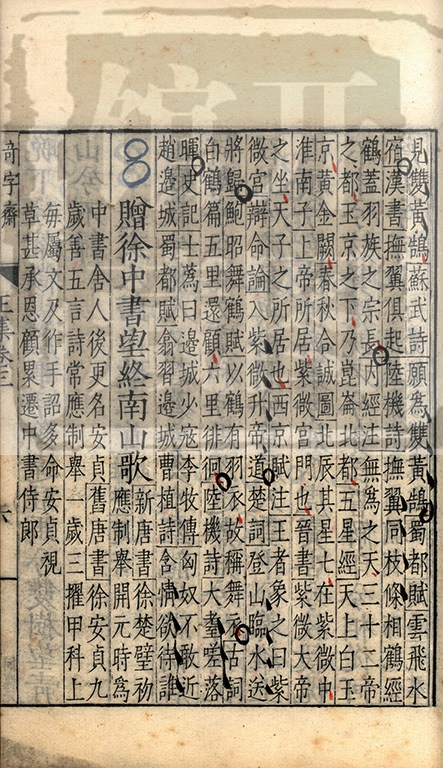 見雙黃鵠蘇武詩願為雙黃鵠蜀都賦雲飛水
宿漢書撫翼俱起陸機詩撫翼同枝條相鶴經
鶴蓋羽族之宗長內經注無為之天三十二帝
之都玉京之下乃崑崙北都五星經天上白玉
京黃金闕春秋合誠圖北辰其星七在紫微中
淮南子上帝所居紫微宮門也晉書紫微大帝
之坐天子之所居也西京賦注王者象之曰紫
微官辯命論入紫微升帝道楚詞登山臨水送
將歸鮑昭舞鶴賦以鶴有羽衣故稱舞衣古詞
白鶴篇五里還顧六里徘徊陸機詩大耋嗟落
暉史記士蔿曰邊城少寇李牧傳匈奴不敢近
趙邊城蜀都賦翕習邊城曹植詩含情欲待誰
8 贈徐中書望終南山歌 新唐書徐楚璧初
應制舉開元時為
中書舍人後更名安貞舊唐書徐安貞九
歲善五言詩常應制舉一歲三擢甲科上
每屬文及作手詔多命安貞視
草甚承恩顧累遷中書侍郎
奇字齋 王集卷三 六